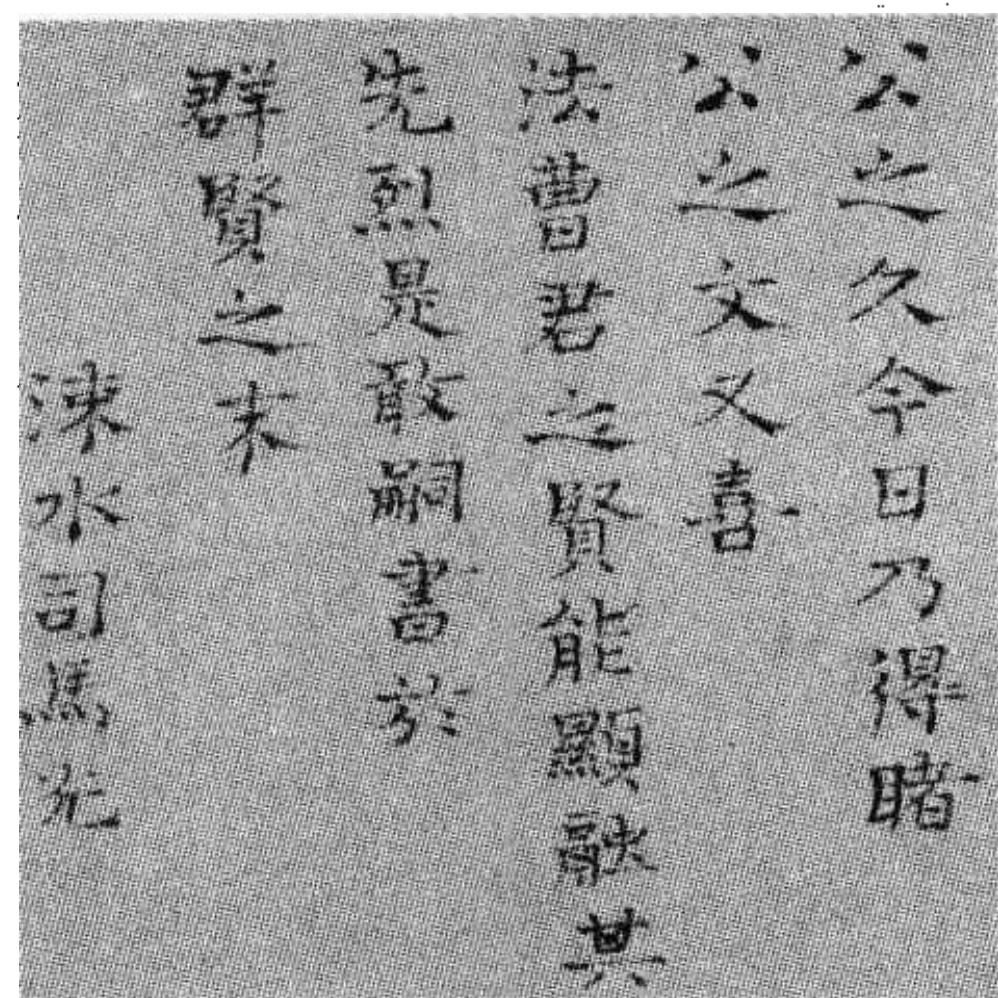 公之久今日乃得睹
公之文又喜
法曹君之賢能顯融其
先烈是敢嗣書於
群賢之末
涑水司馬光